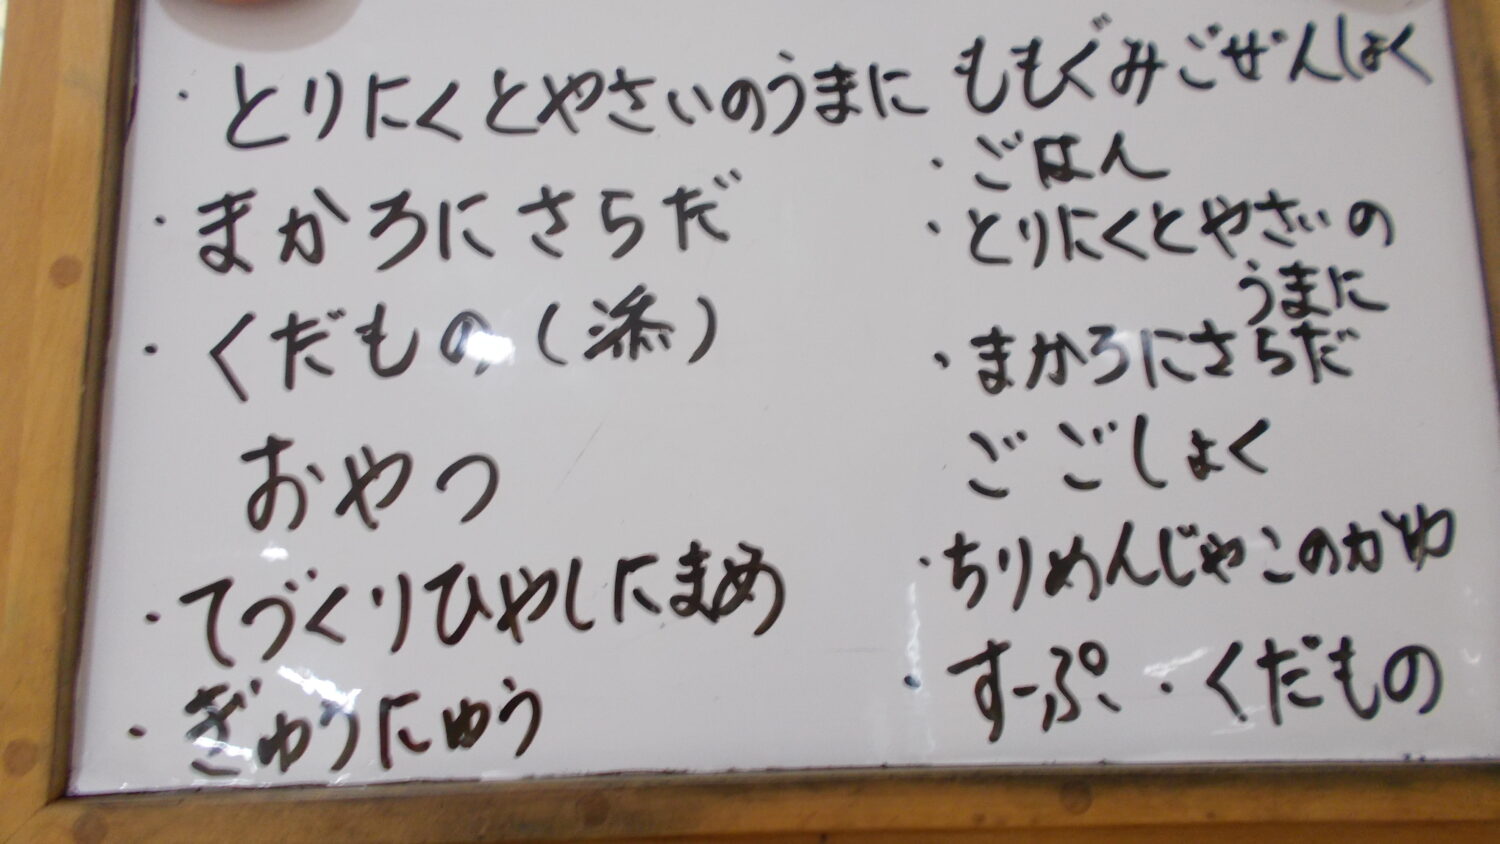 ・とりにくとやさいのうまに
・まかろにさらだ
・くだもの(添)
おやつ
・てづくりひやしにまめ
・ぎゅうにゅう
ももぐみごぜんしょく
・ごはん
・とりにくとやさいの
うまに
・まかろにさらだ
ごごしょく
・ちりめんじゃこのかゆ
・すーぷ・くだもの